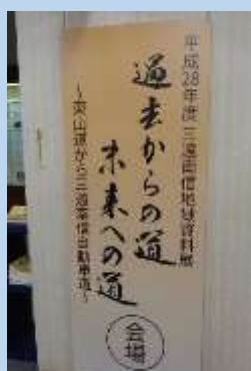 平成28年度 三遠南信地域資料展
過去からの道
未来への道
～東山道から三遠南信自動車道～
会場